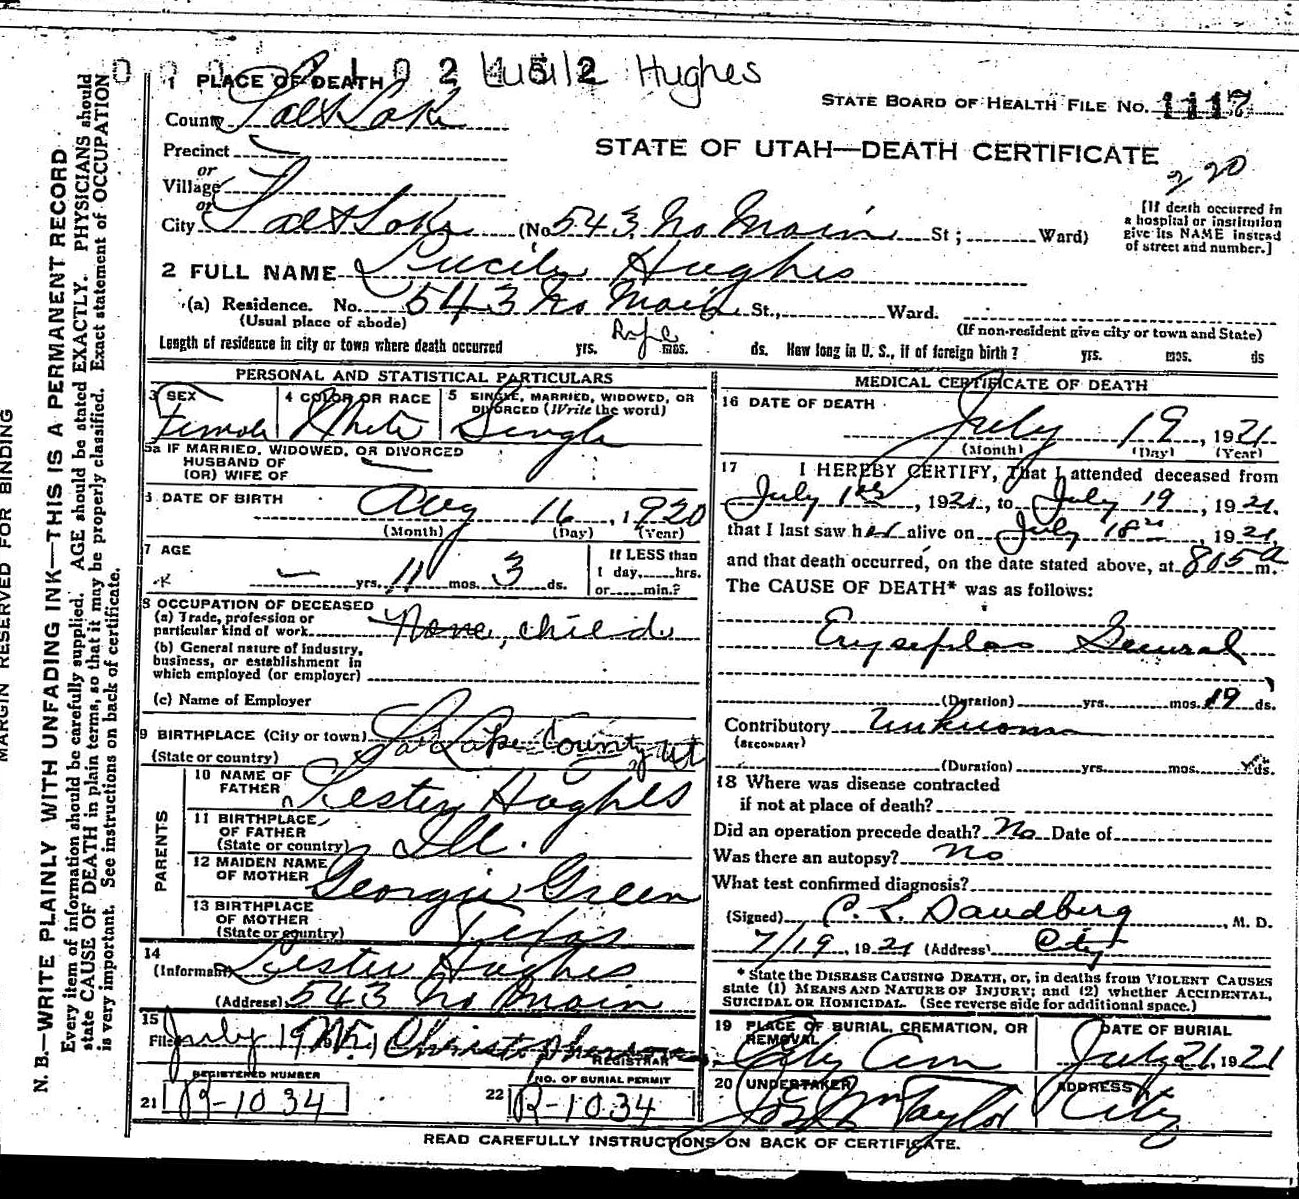 0 0 0 2 1 0 2 4 5 2 Lucile Hughes
1 PLACE OF DEATH
STATE BOARD OF HEALTH FILE No. 1117
County Salt Lake
STATE OF UTAH—DEATH CERTIFICATE
220
Precinct
or
Village
or
City Salt Lake (No 543 No Main St; Ward)
[If death occurred in
a hospital or institution
give its NAME instead
of street and number.]
2 FULL NAME Lucile Hughes
(a) Residence. No. 543 No Main St., Ward.
(Usual place of abode) (If non-resident give city or town and State)
Length of residence in city or town where death occurred yrs. mos. ds. How long in U. S., if of foreign birth? yrs. mos. ds
PERSONAL AND STATISTICAL PARTICULARS
3 SEX
Female
4 COLOR OR RACE
White
5 SINGLE, MARRIED, WIDOWED, OR
DIVORCED (Write the word)
Single
5a IF MARRIED, WIDOWED, OR DIVORCED
HUSBAND OF
(OR) WIFE OF
6 DATE OF BIRTH
Aug 16, 1920
(Month) (Day) (Year)
7 AGE
— yrs. 11 mos. 3 ds.
If LESS than
1 day, hrs.
or min.?
8 OCCUPATION OF DECEASED
(a) Trade, profession or
particular kind of work None, child
(b) General nature of industry,
business, or establishment in
which employed (or employer)
(c) Name of Employer
9 BIRTHPLACE (City or town) Salt Lake County Ut
(State or country)
PARENTS
10 NAME OF
FATHER Lester Hughes
11 BIRTHPLACE
OF FATHER
(State or country) Ill.
12 MAIDEN NAME
OF MOTHER Georgie Green
13 BIRTHPLACE
OF MOTHER
(State or country) Texas
14
(Informant Lester Hughes
(Address) 543 No Main
15
Filed July 19 Christopherson
REGISTRAR
REGISTERED NUMBER
21 R-1034
NO. OF BURIAL PERMIT
22 R-1034
MEDICAL CERTIFICATE OF DEATH
16 DATE OF DEATH
July 19, 1921
(Month) (Day) (Year)
17 I HEREBY CERTIFY, That I attended deceased from
July 1st, 1921, to July 19, 1921.
that I last saw her alive on July 18th, 1921,
and that death occurred, on the date stated above, at 815 a m.
The CAUSE OF DEATH* was as follows:
Erysipelas General
(Duration) yrs. mos. 19 ds.
Contributory Unknown
(SECONDARY)
(Duration) yrs. mos. ds.
18 Where was disease contracted
if not at place of death?
Did an operation precede death? No Date of
Was there an autopsy? No
What test confirmed diagnosis?
(Signed) C. L. Sandberg, M. D.
7/19, 1921 (Address) City
* State the DISEASE CAUSING DEATH, or, in deaths from VIOLENT CAUSES
state (1) MEANS AND NATURE OF INJURY; and (2) whether ACCIDENTAL,
SUICIDAL OR HOMICIDAL. (See reverse side for additional space.)
19 PLACE OF BURIAL, CREMATION, OR
REMOVAL
City Cem
DATE OF BURIAL
July 21, 1921
20 UNDERTAKER
Jos Wm Taylor
ADDRESS
City
READ CAREFULLY INSTRUCTIONS ON BACK OF CERTIFICATE.
MARGIN RESERVED FOR BINDING
N. B.—WRITE PLAINLY WITH UNFADING INK—THIS IS A PERMANENT RECORD
Every item of information should be carefully supplied. AGE should be stated EXACTLY. PHYSICIANS should
state CAUSE OF DEATH in plain terms, so that it may be properly classified. Exact statement of OCCUPATION
is very important. See instructions on back of certificate.